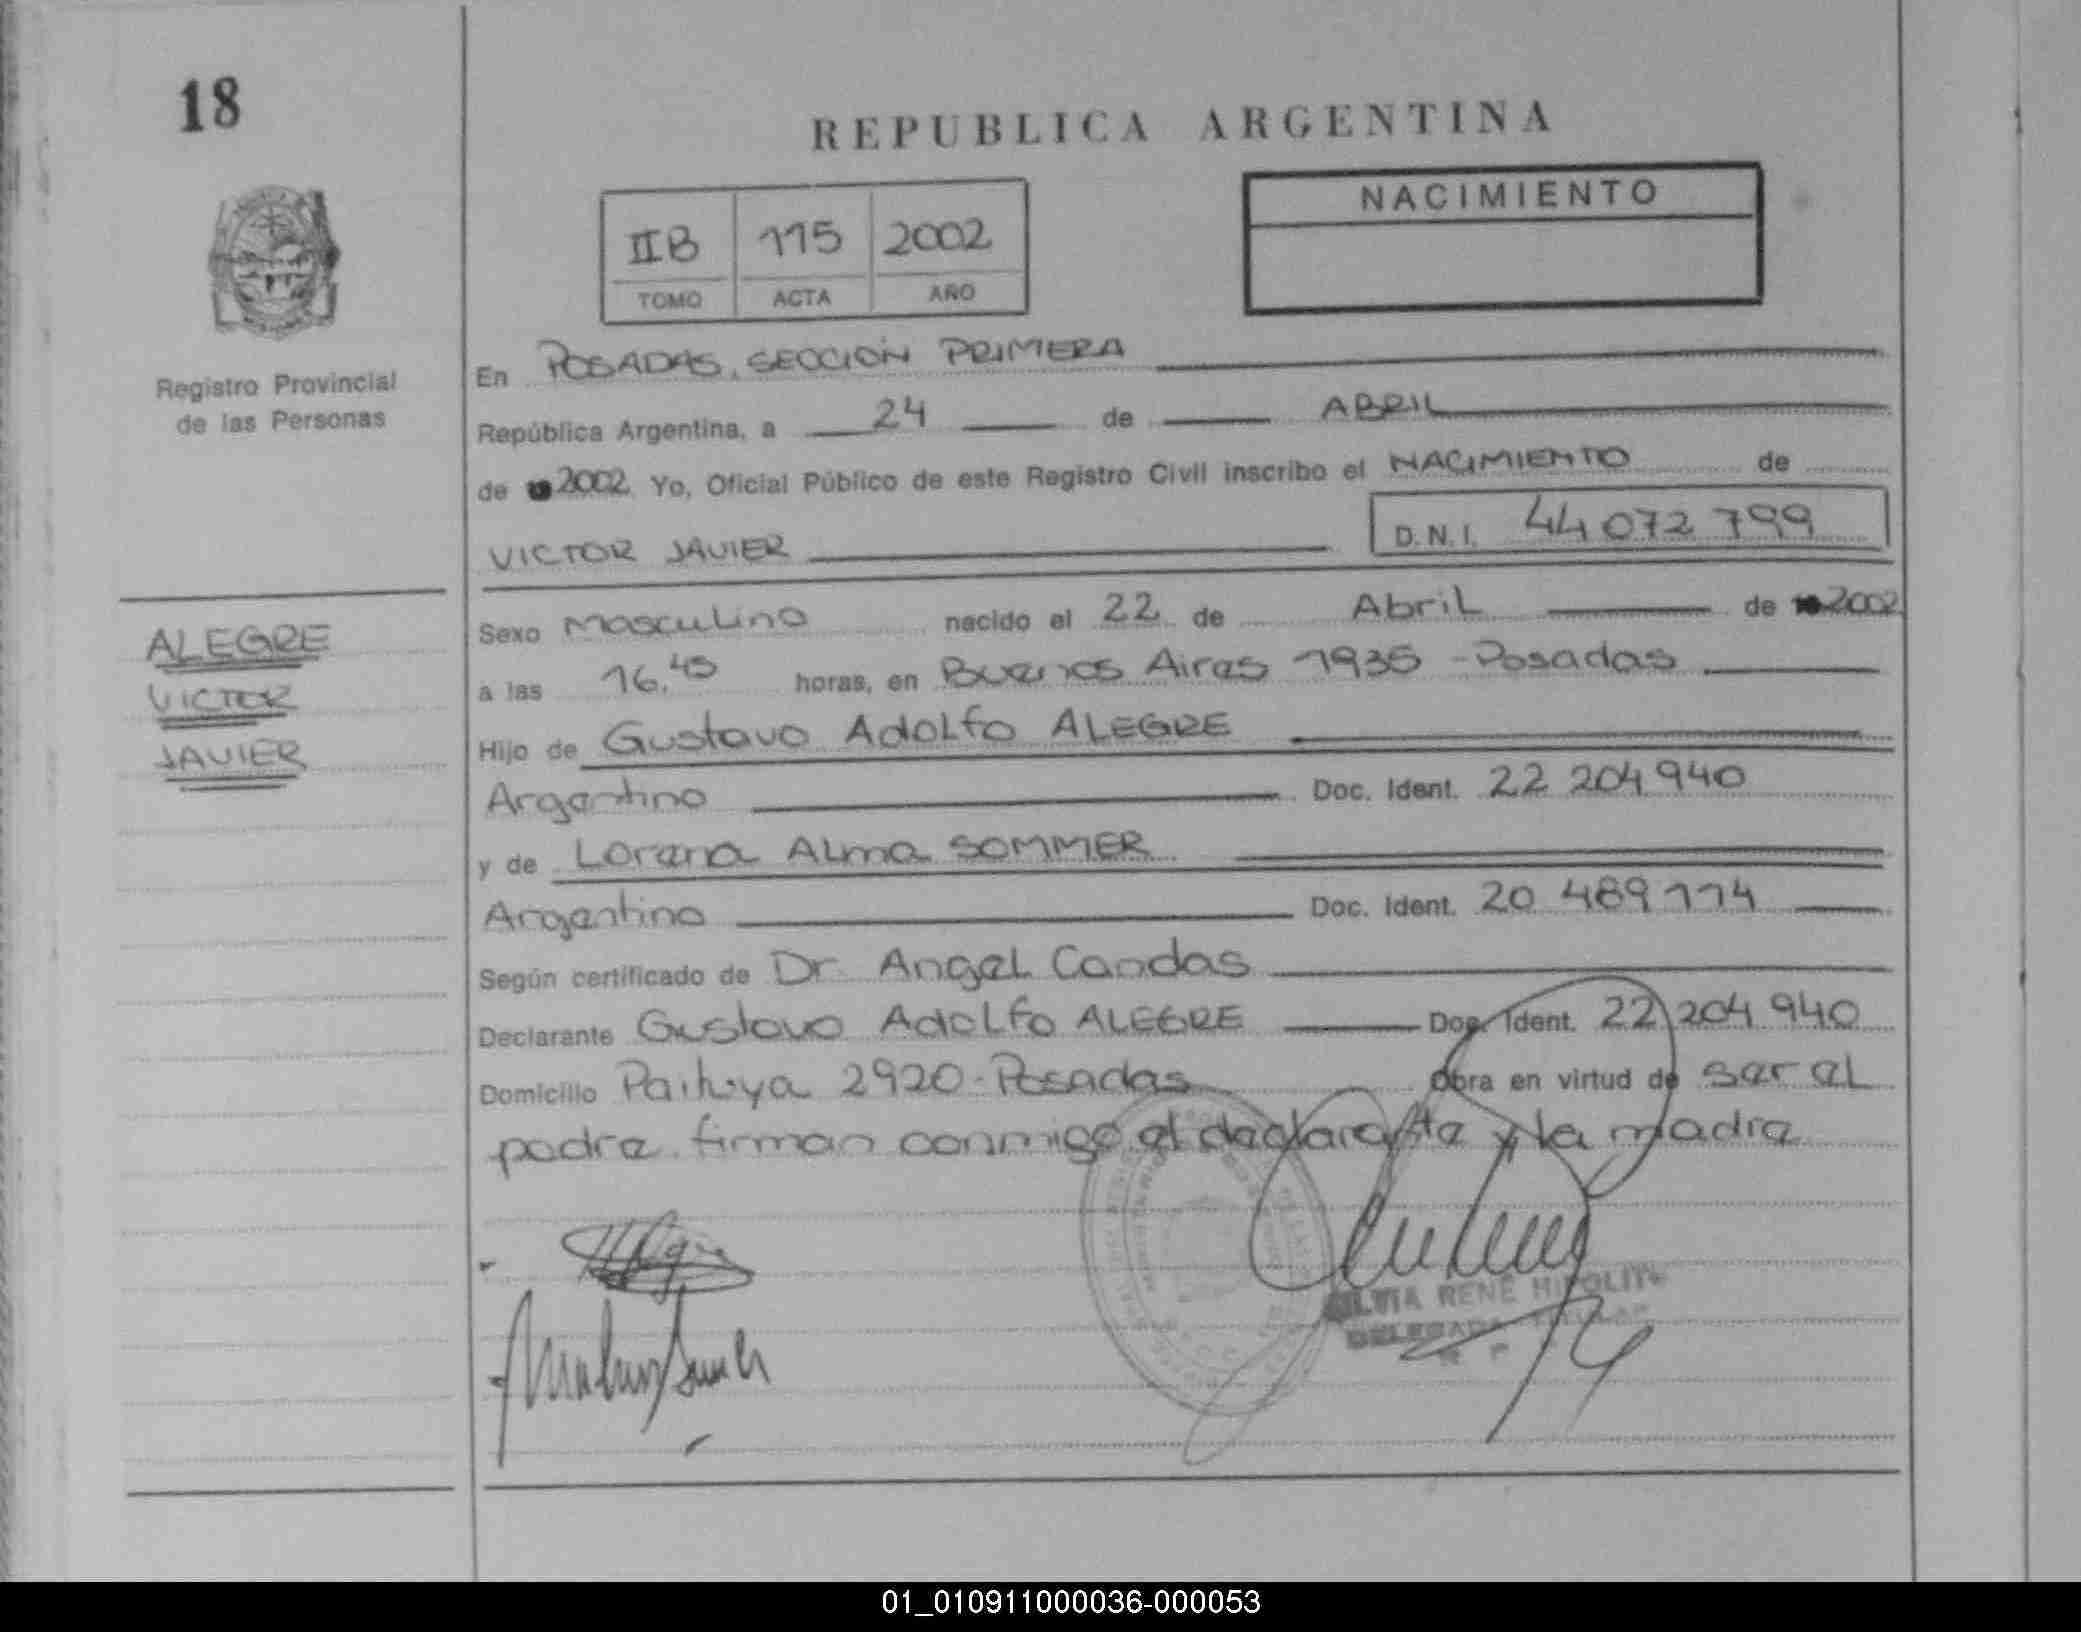 18
REPUBLICA ARGENTINA
NACIMIENTO
IIB 115 2002
TOMO ACTA AÑO
Registro Provincial
de las Personas
En POSADAS, SECCIÓN PRIMERA
República Argentina, a 24 de ABRIL
de 2002 Yo, Oficial Público de este Registro Civil inscribo el NACIMIENTO de
VICTOR JAVIER D.N.I. 44 072 799
ALEGRE
VICTOR
JAVIER
Sexo Masculino nacido el 22 de Abril de 2002
a las 16.45 horas, en Buenos Aires 1935 - Posadas
Hijo de Gustavo Adolfo ALEGRE
Argentino Doc. Ident. 22 204 940
y de Lorena Alma SOMMER
Argentina Doc. Ident. 20 489 114
Según certificado de Dr. Angel Candas
Declarante Gustavo Adolfo ALEGRE Doc. Ident. 22 204 940
Domicilio 2920 - Posadas Obra en virtud de ser el
padre firman conmigo el declarante y la madre
RENÉ
DELEGADA TITULAR
01_010911000036-000053